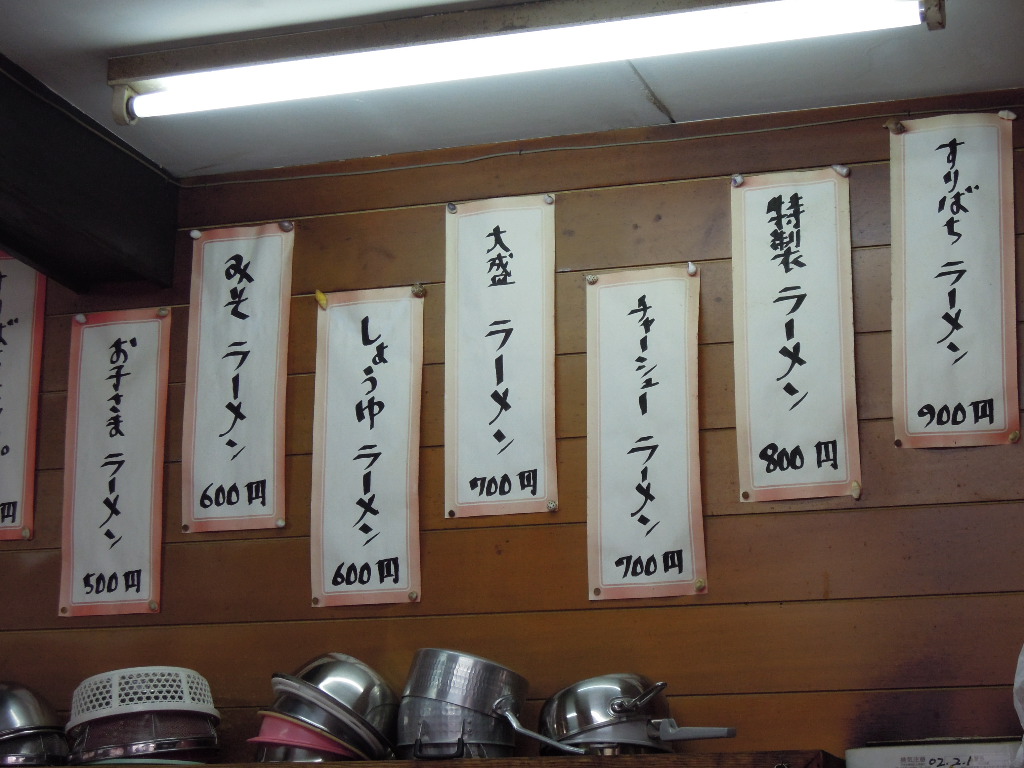 すりばち ラーメン
900円
特製 ラーメン
800円
チャーシュー ラーメン
700円
大盛 ラーメン
700円
しょうゆ ラーメン
600円
みそ ラーメン
600円
お子さま ラーメン
500円
円
02.2.1